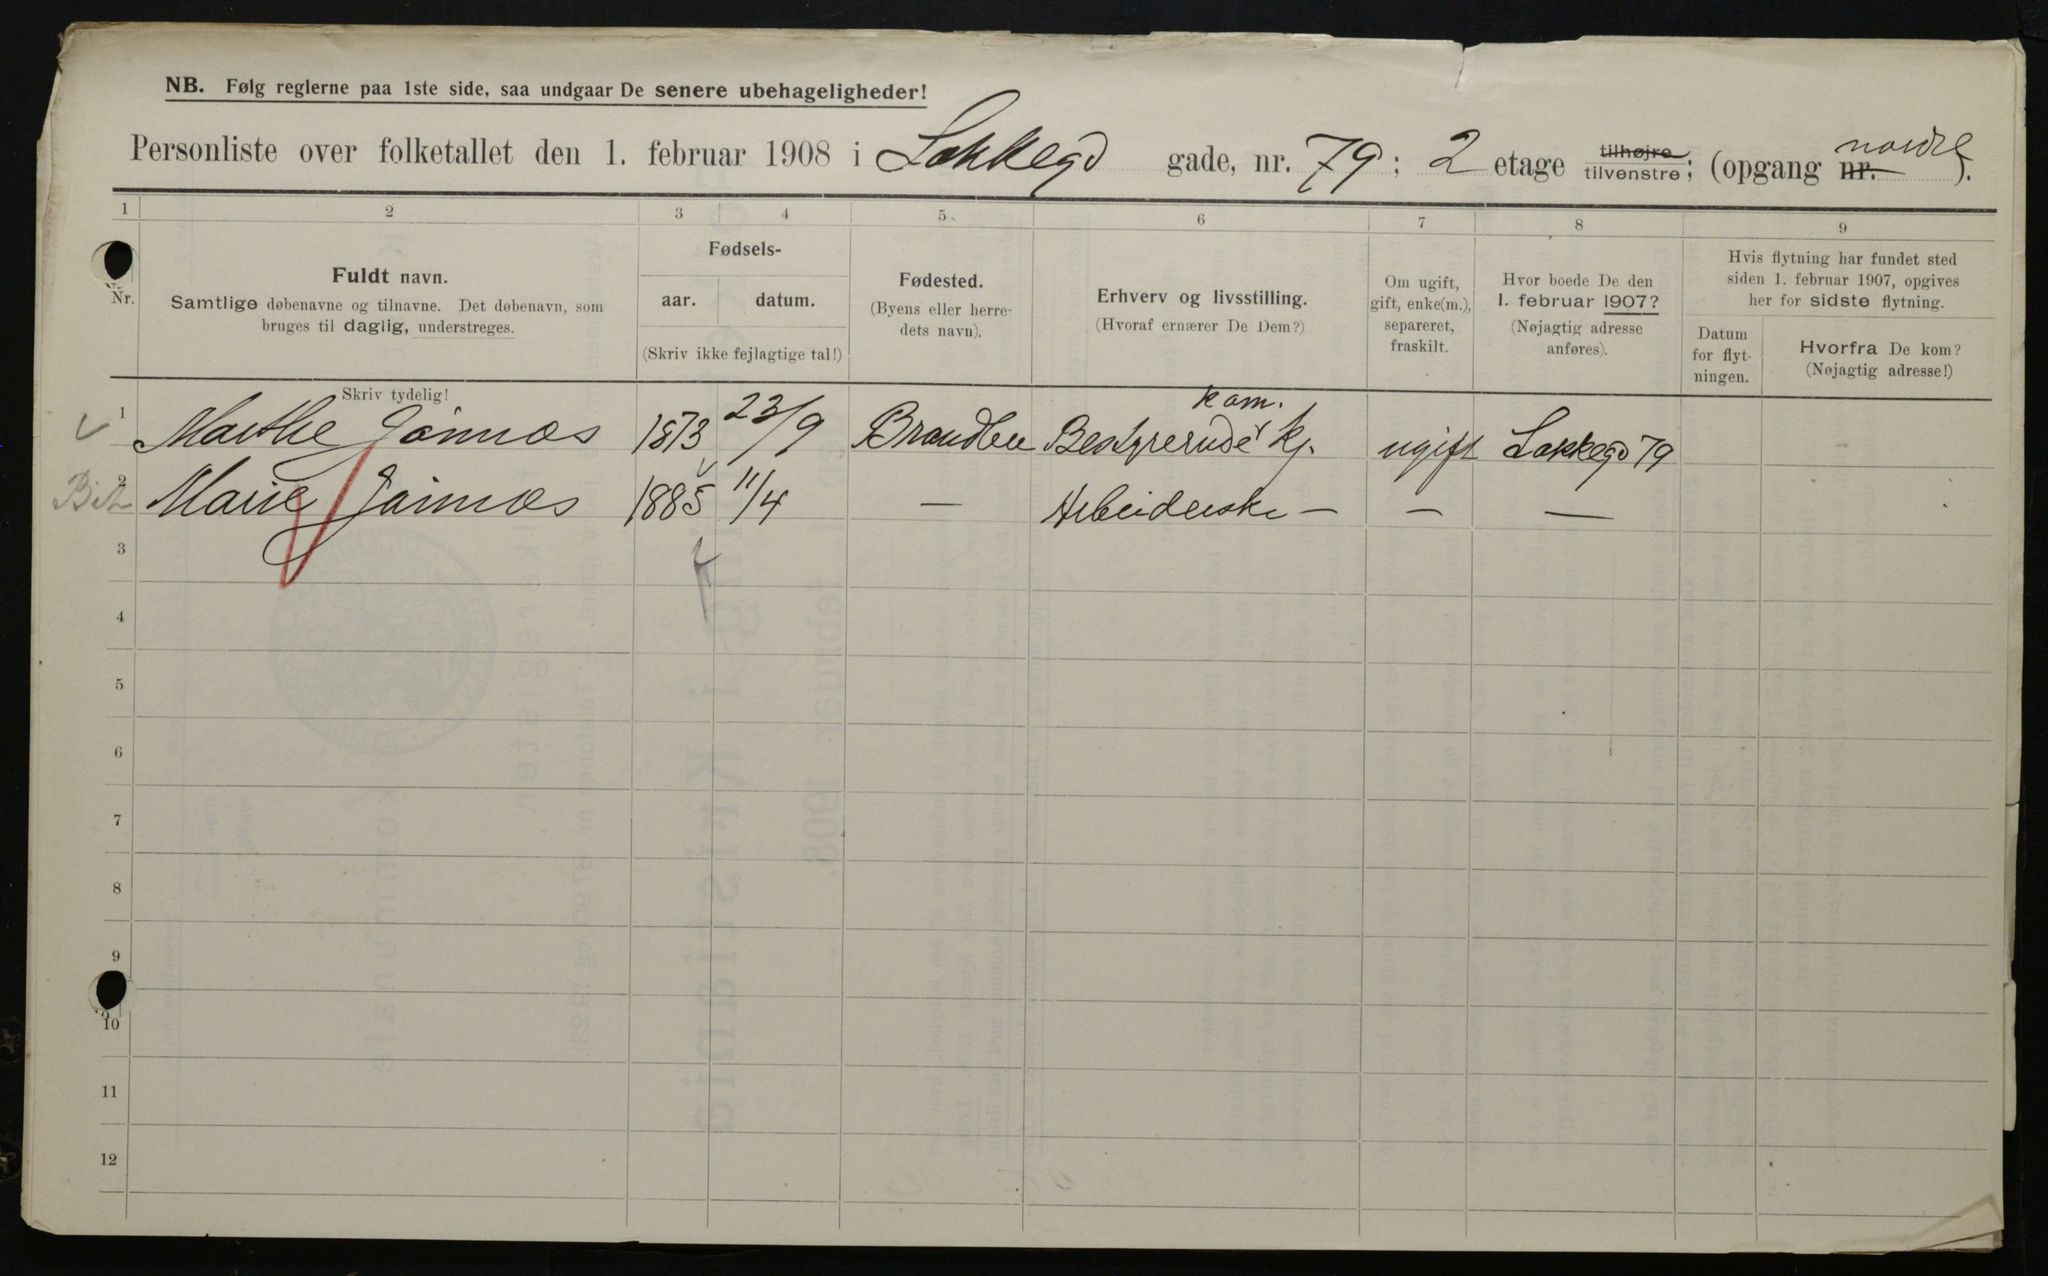 NB. Følg reglerne paa 1ste side, saa undgaar De senere ubehageligheder!
Personliste over folketallet den 1. februar 1908 i Lakkegd gade, nr. 79; 2 etage tilhøjre tilvenstre; (opgang nr. nordre).
1 2 3 4 5. 6 7 8 9
Nr.
Fuldt navn.
Samtlige døbenavne og tilnavne. Det døbenavn, som
bruges til daglig, understreges.
Skriv tydelig!
Fødsels-
aar. datum.
(Skriv ikke fejlagtige tal!)
Fødested.
(Byens eller herre-
dets navn).
Erhverv og livsstilling.
(Hvoraf ernærer De Dem?)
Om ugift,
gift, enke(m.),
separeret,
fraskilt.
Hvor boede De den
1. februar 1907?
(Nøjagtig adresse
anføres).
Hvis flytning har fundet sted
siden 1. februar 1907, opgives
her for sidste flytning.
Datum
for flyt-
ningen.
Hvorfra De kom?
(Nøjagtig adresse!)
kom.
1 Marthe 1873 23/9 Brandbu Bestyrerinde kj. ugift Lakkegd 79
2 Marie 1885 11/4 — Arbeiderske — — —
3
4
5
6
7
8
9
10
11
12